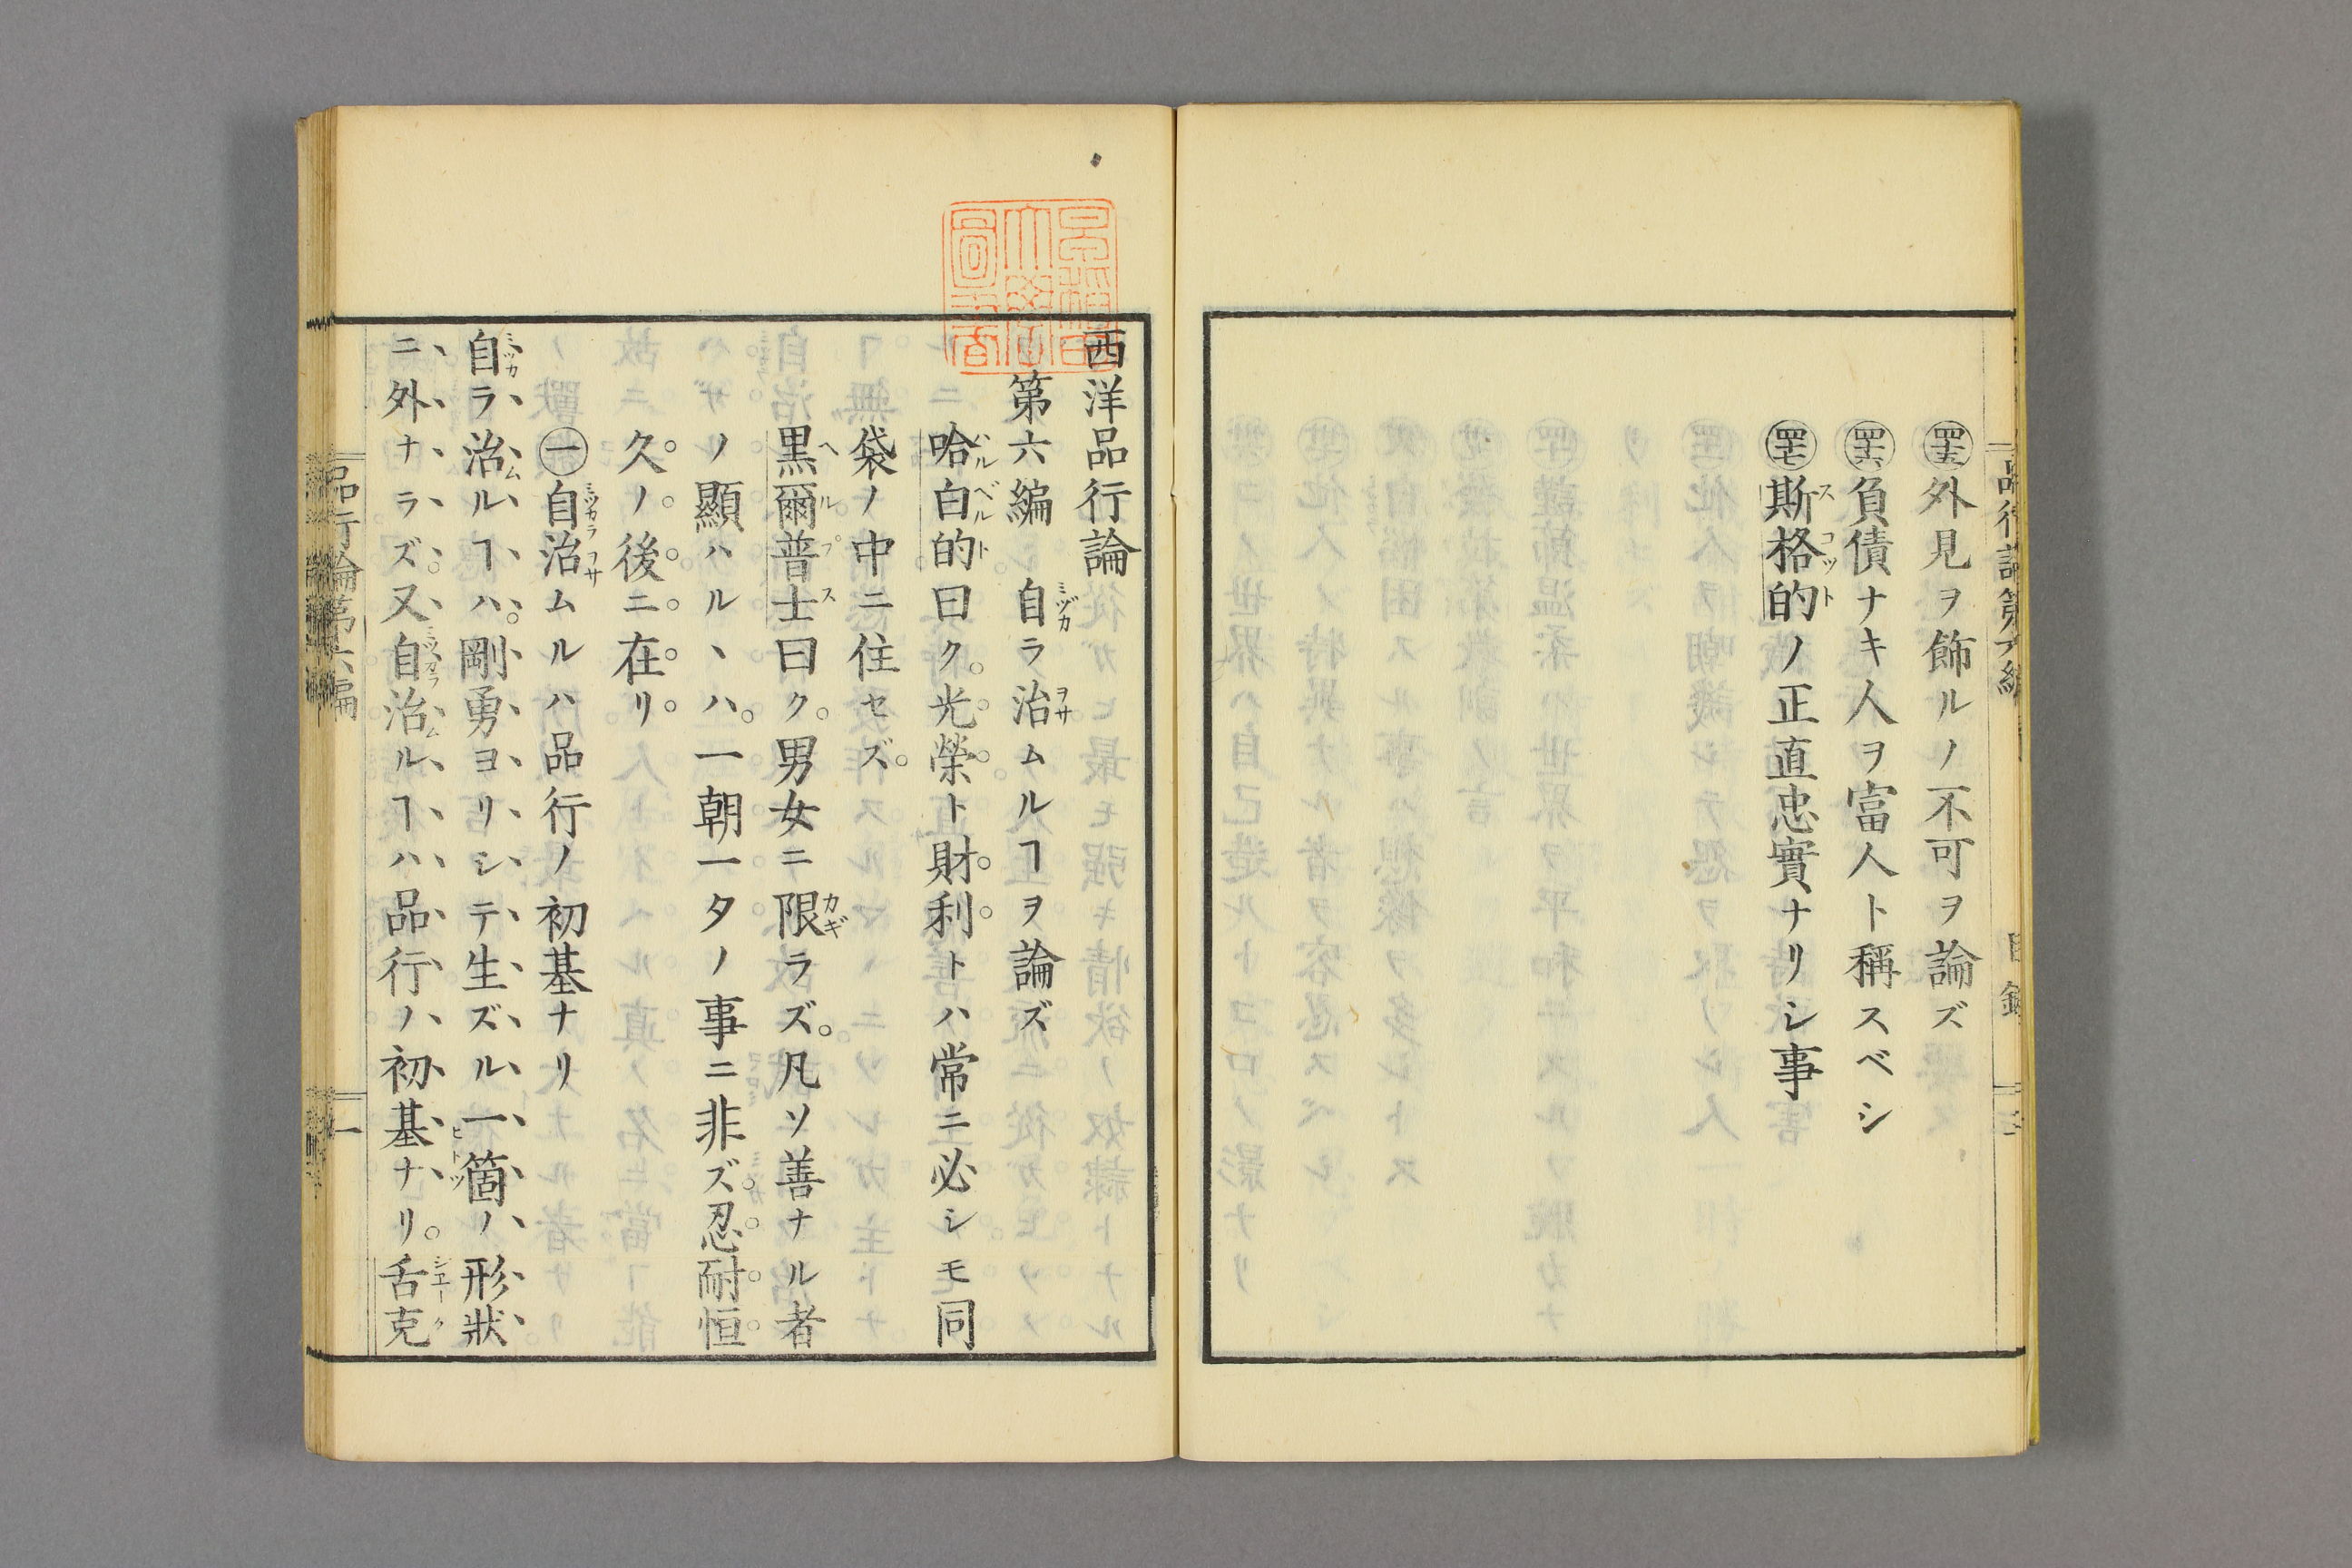 ㊺外見ヲ飾ルノ不可ヲ論ズ
㊻負債ナキ人ヲ富人ト稱スベシ
㊼斯格的ノ正直忠實ナリシ事
西洋品行論
第六編 自ラ治ムルヿヲ論ズ
哈白的曰ク。光榮ト財利トハ常ニ必シモ同
袋ノ中ニ住セズ。
黒爾普士曰ク。男女ニ限ラズ。凡ソ善ナル者
ノ顯ハルヽハ。一朝一夕ノ事ニ非ズ。忍耐恒
久ノ後ニ在リ。
㊀自治ムルハ品行ノ初基ナリ
自ラ治ルヿハ。剛勇ヨリシテ生ズル一箇ノ形狀
ニ外ナラズ。又自治ルヿハ品行ノ初基ナリ。舌克
品行論第六編 一